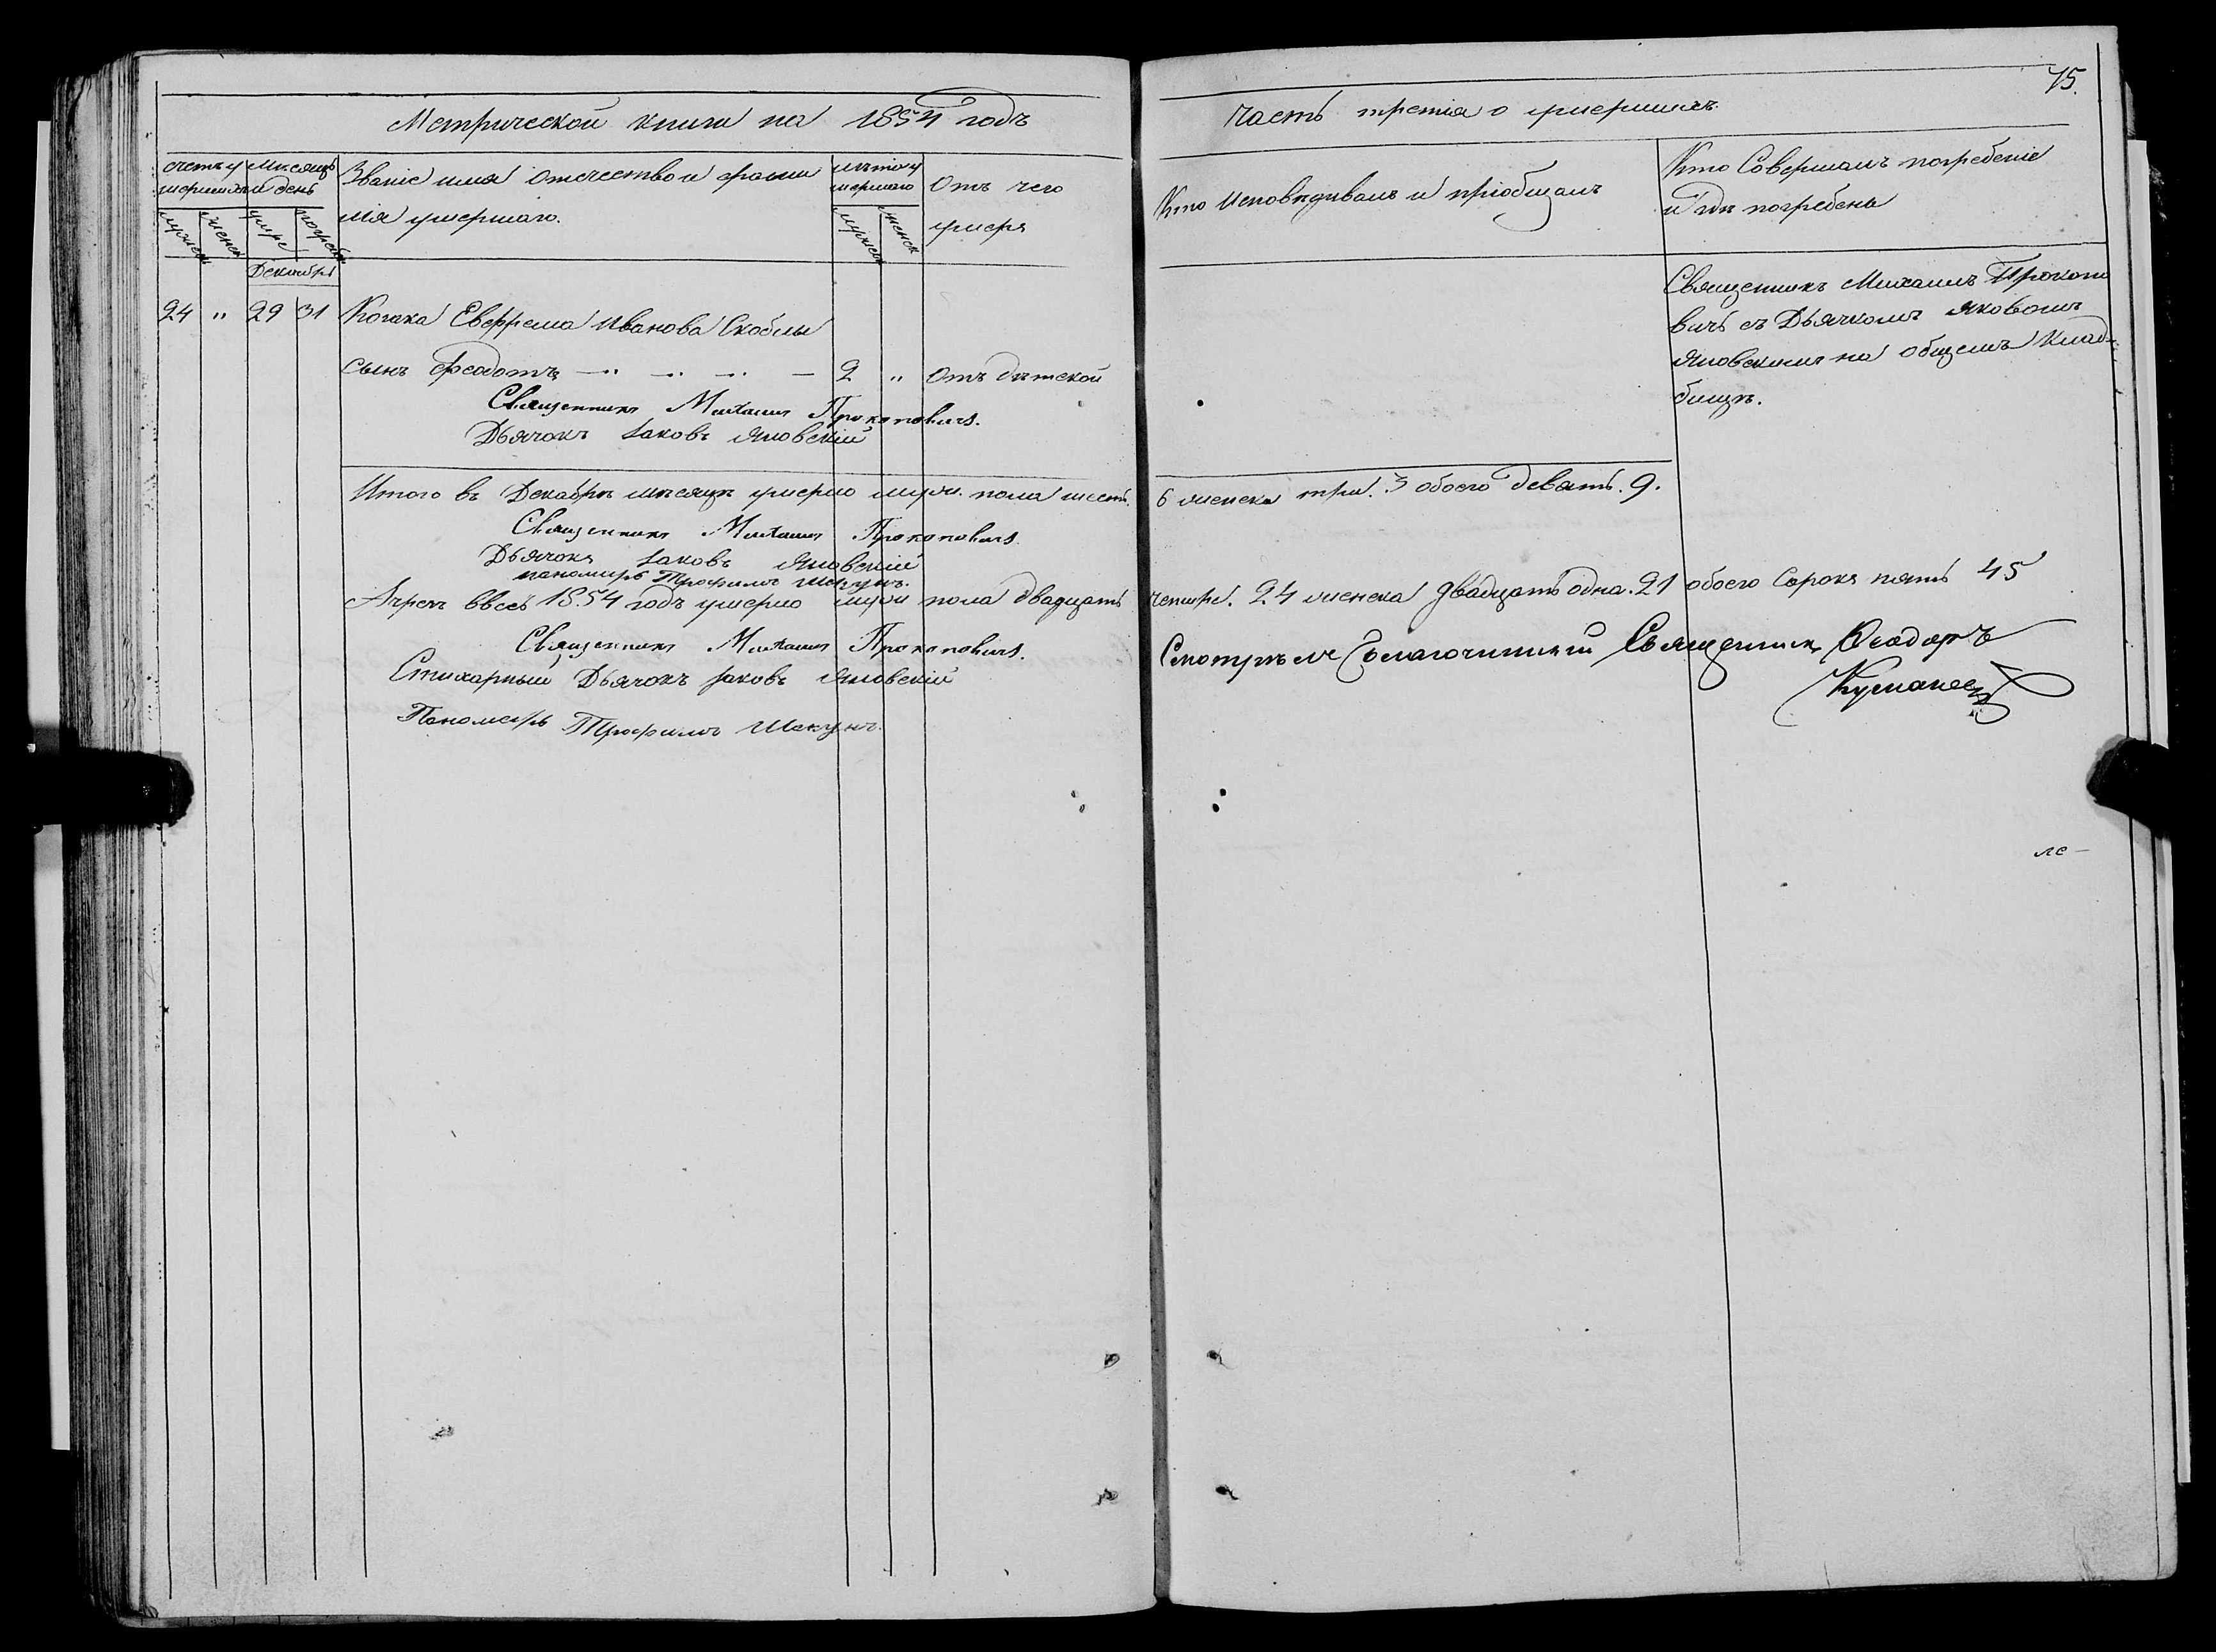 75.
Метрической книги на 1854 годъ
часть третія о умершихъ.
счетъ у
мершихъ
мужеск
женск
Мѣсяцъ
и день
умре
погреб
Званіе имя отечество и фами
лія умершаго.
лѣта у
мершаго
мужеск
женск
Отъ чего
умеръ
Кто Исповѣдывалъ и пріобщалъ
Кто Совершалъ погребеніе
и гдѣ погребенъ
Декабрь
24 " 29 31 Козака Евфрема Иванова Скоблы
сынъ Феодотъ 2 " Отъ дѣтской
Священникъ Михаилъ Прокоповичъ.
Дьячокъ Іаковъ Яновскій
Священникъ Михаилъ Прокопо
вичъ съ Дьячкомъ Яковомъ
Яновскимъ на общемъ клад-
бищѣ.
Итого въ Декабрѣ мѣсяцѣ умерло муж. пола шесть. 6 женска три. 3 обоего девять. 9.
Священникъ Михаилъ Прокоповичъ.
Дьячокъ Іаковъ Яновскій
пономарь Трофимъ Шекунъ.
Агрезъ ввесь 1854 годъ умерло муж пола двадцать четыре. 24 женска двадцать одна. 21 обоего Сорокъ пять 45
Священникъ Михаилъ Прокоповичъ.
Стихарный Дьячокъ Іаковъ Яновскій
Пономарь Трофимъ Шекунъ.
Смотрѣлъ Благочинный Священникъ Ѳеодоръ